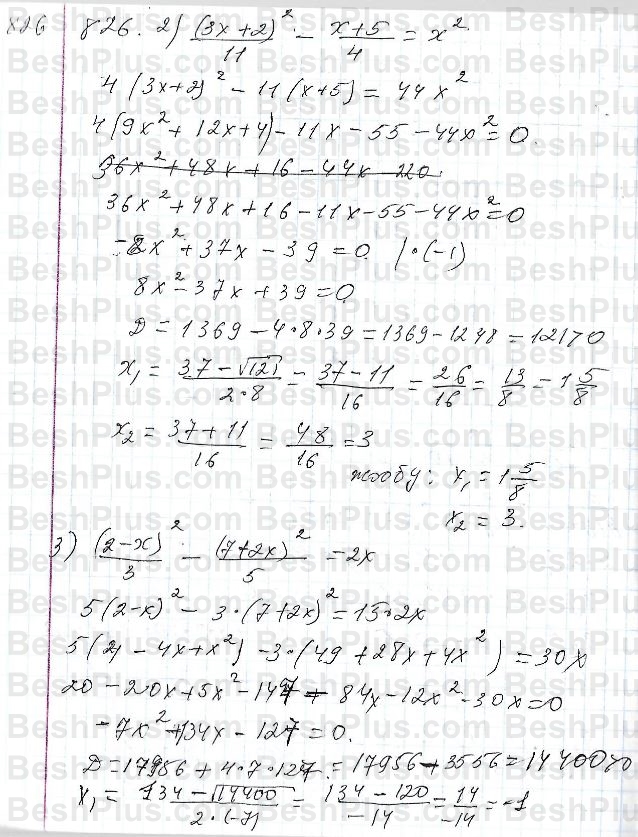 826 826. 2) (3x+2)²/11 - (x+5)/4 = x²
4(3x+2)² - 11(x+5) = 44x²
4(9x² + 12x+4) - 11x - 55 - 44x² = 0.
36x² + 48x + 16 - 44x - 220
36x² + 48x + 16 - 11x - 55 - 44x² = 0
-8x² + 37x - 39 = 0 |•(-1)
8x² - 37x + 39 = 0
D = 1369 - 4•8•39 = 1369 - 1248 = 121>0
x₁ = (37-√121)/(2•8) = (37-11)/16 = 26/16 = 13/8 = 1 5/8
x₂ = (37+11)/16 = 48/16 = 3
жообу: x₁ = 1 5/8
x₂ = 3.
3) (2-x)²/3 - (7+2x)²/5 = 2x
5(2-x)² - 3•(7+2x)² = 15•2x
5(4 - 4x + x²) - 3•(49 + 28x + 4x²) = 30x
20 - 20x + 5x² - 147 - 84x - 12x² - 30x = 0
-7x² - 134x - 127 = 0.
D = 17956 + 4•7•127 = 17956 - 3556 = 14400>0
x₁ = (134-√14400)/(2•(-7)) = (134-120)/-14 = 14/-14 = -1
BeshPlus.com